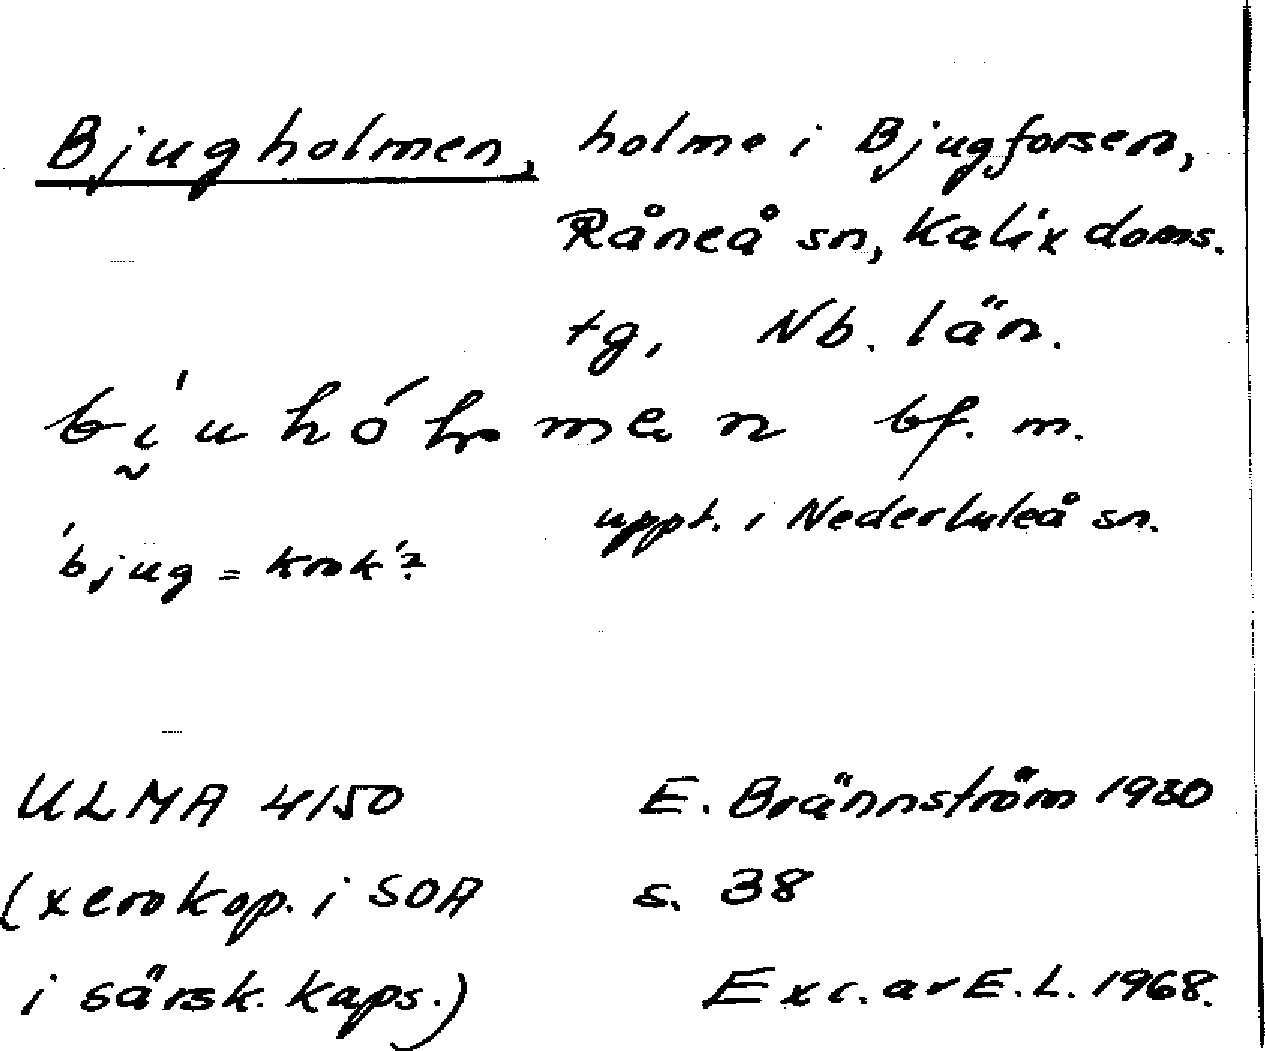 Bjugholmen, holme i Bjugforsen,
Råneå sn, Kalix doms.
tg, Nb. län.
bf. m.
uppt. i Nederluleå sn.
'bjug = krok'?
ULMA 4150 E. Brännström 1930
(xerokop. i SOA s. 38
i särsk. kaps.) Exc. av E.L. 1968.